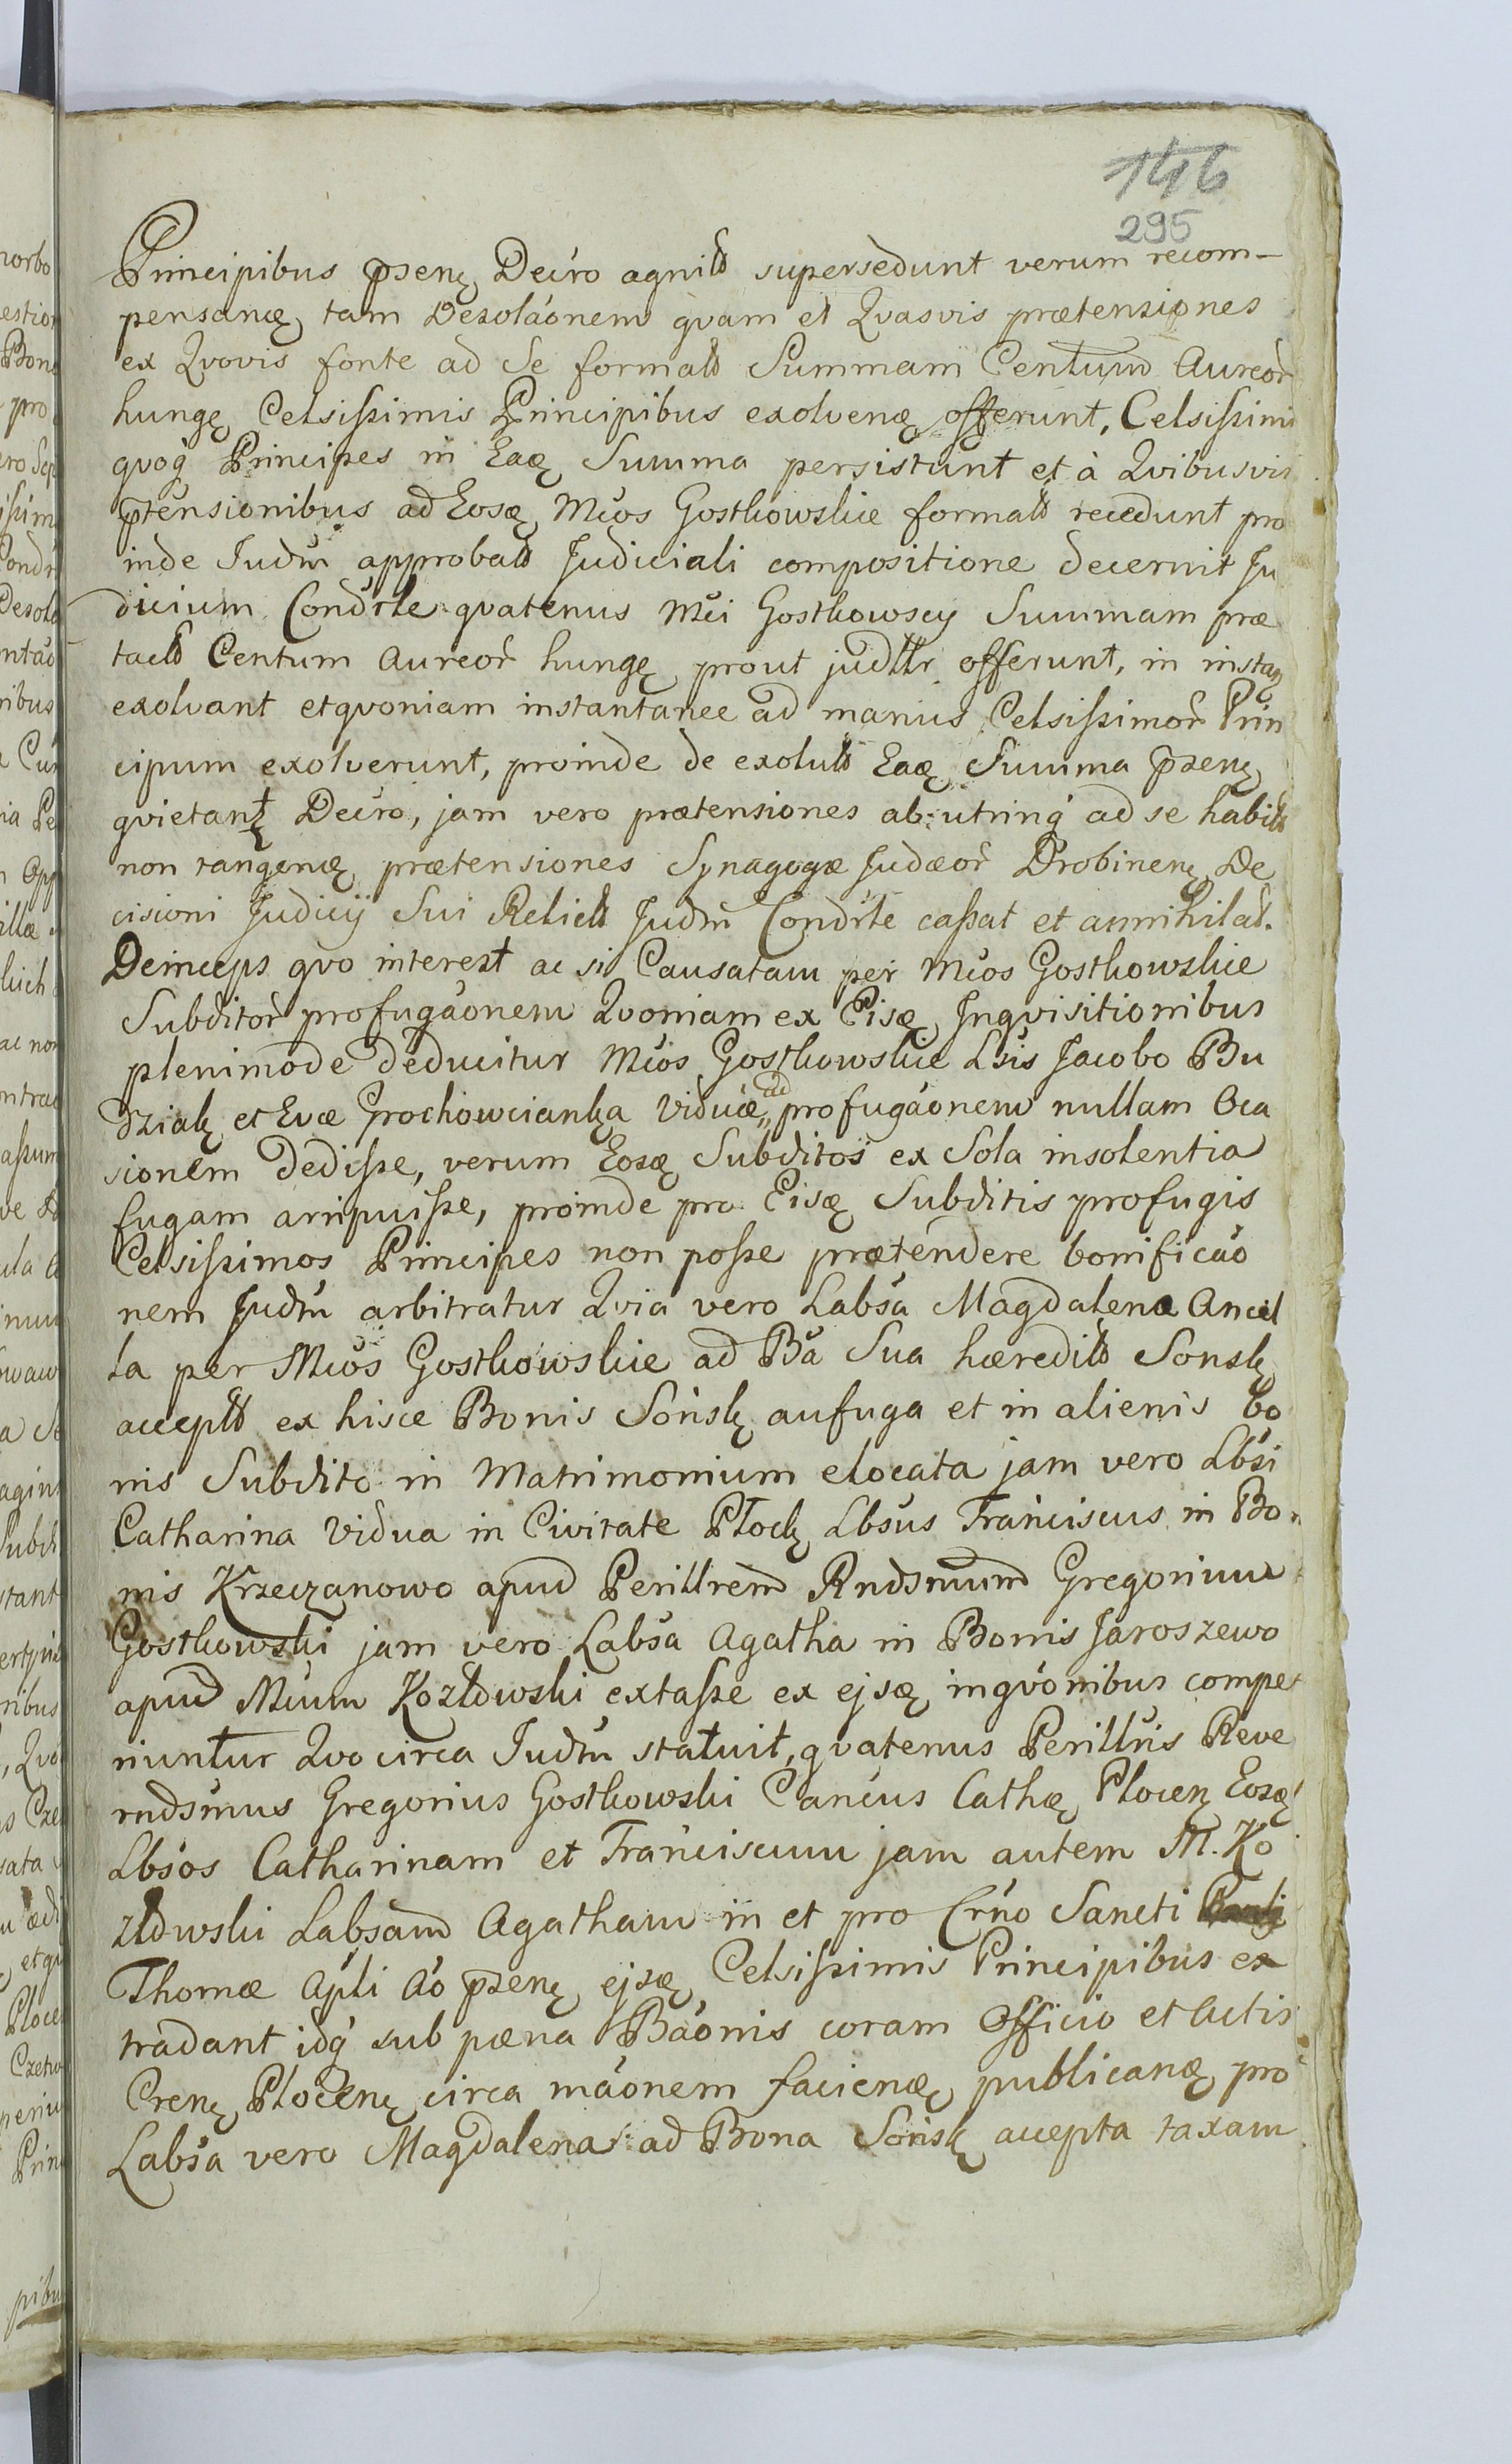 146
295
Principibus pzenę Decro agnitt supersedunt verum recom-
pensanę tam Dezoláonem qvam et Qvasvis prætensiones
ex Qvovis fonte ad Se formatt Summam Centum Aureor
hungę Celsißimis Principibus exolvenę offerunt, Celsißimi
qvoq Principes in Eaę Summa persistunt et à Qvibusvis
ptensionibus ad Eosę Mcos Gostkowskie formatt recedunt pro
inde Judm approbatt Judiciali compositione decernit Ju
dicium Condrle qvatenus Mci Gostkowscy Summam præ
tactt Centum Aureor hungę prout judlłr offerunt, in instaę
exolvant et qvoniam instantanee ad manus Celsißimor Prin
cipum exolverunt, proinde de exolutt Eaę Summa pzenę
qvietantę Decro, jam vero prætensiones ab utrinq ad se habitt
non tangenę prætensiones Synagogæ Judæor Drobinenę De
cisioni Judicij Sui Relictt Judm Condrle caßat et annihilat.
Deinceps qvo interest ac si Causatam per Mcos Gostkowskie
Subditor profugáonem Qvoniam ex Eisę Jnqvisitionibus
plenimode deducitur Mcos Gostkowskie Lsis Jacobo Bu
dzialę et Evæ Grochowcianka viduæ ad profugáonem nullam Oca
sionem dediße, verum Eosę Subditos ex Sola insolentia
fugam arripuiße, proinde pro Eisę Subditis profugis
Celsißimos Principes non poße prætendere bonificáo
nem Judm arbitratur Qvia vero Labsa Magdalena Ancil
la per Mcos Gostkowskie ad Ba Sua hæreditt Sonskę
acceptt ex hisce Bonis Sońskę aufuga et in alienis bo
nis Subdito in Matrimonium elocata jam vero Lbsi
Catharina vidua in Civitate Płockę Lbsus Franciscus in Bo-
nis Krzeczanowo apud Perillrem Rndsmum Gregorium
Gostkowski jam vero Labsa Agatha in Bonis Jaroszewo
apud Mcum Kozłowski extaße ex ejsę inqvónibus compe
riuntur Qvocirca Judm statuit, qvatenus Perillris Reve
rndsmus Gregorius Gostkowski Cancus Cathę Plocenę Eosę
Lbsos Catharinam et Franciscum jam autem M. Ko
złowski Labsam Agatham in et pro Crno Sancti
Thomæ Apli Ao pzenę ejsę Celsißimis Principibus ex
tradant idq sub pæna Báonis coram Officio et Actis
Crenę Plocenę circa máonem facienę publicanę pro
Labsa vero Magdalena ad Bona Sońskę accepta taxam